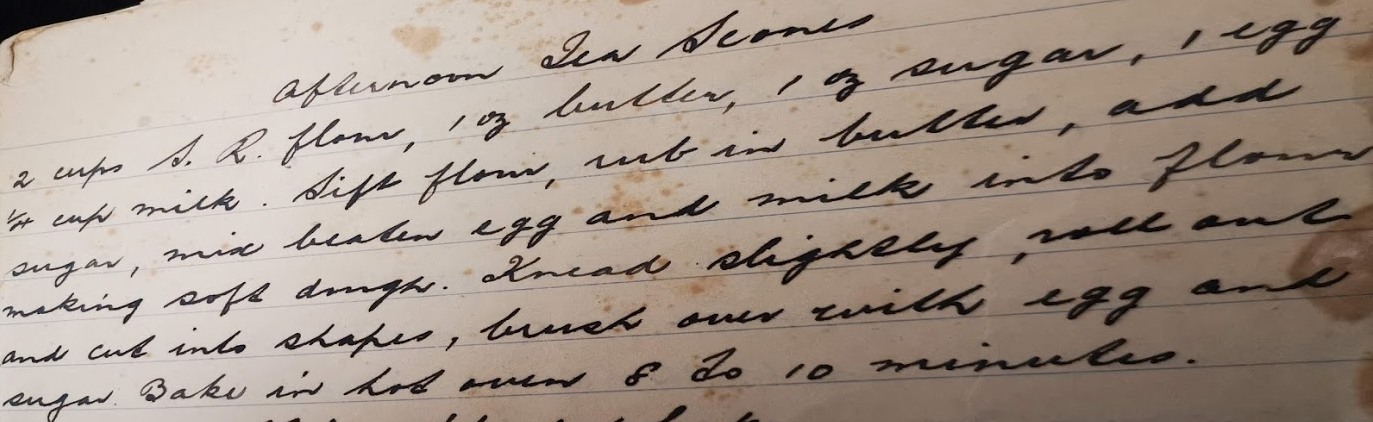 Afternoon Tea Scones
2 cups S. R. flour, 1 oz butter, 1 oz sugar, 1 egg
1/4 cup milk. Sift flour, rub in butter, add
sugar, mix beaten egg and milk into flour
making soft dough. Knead slightly, roll out
and cut into shapes, brush over with egg and
sugar. Bake in hot oven 8 to 10 minutes.